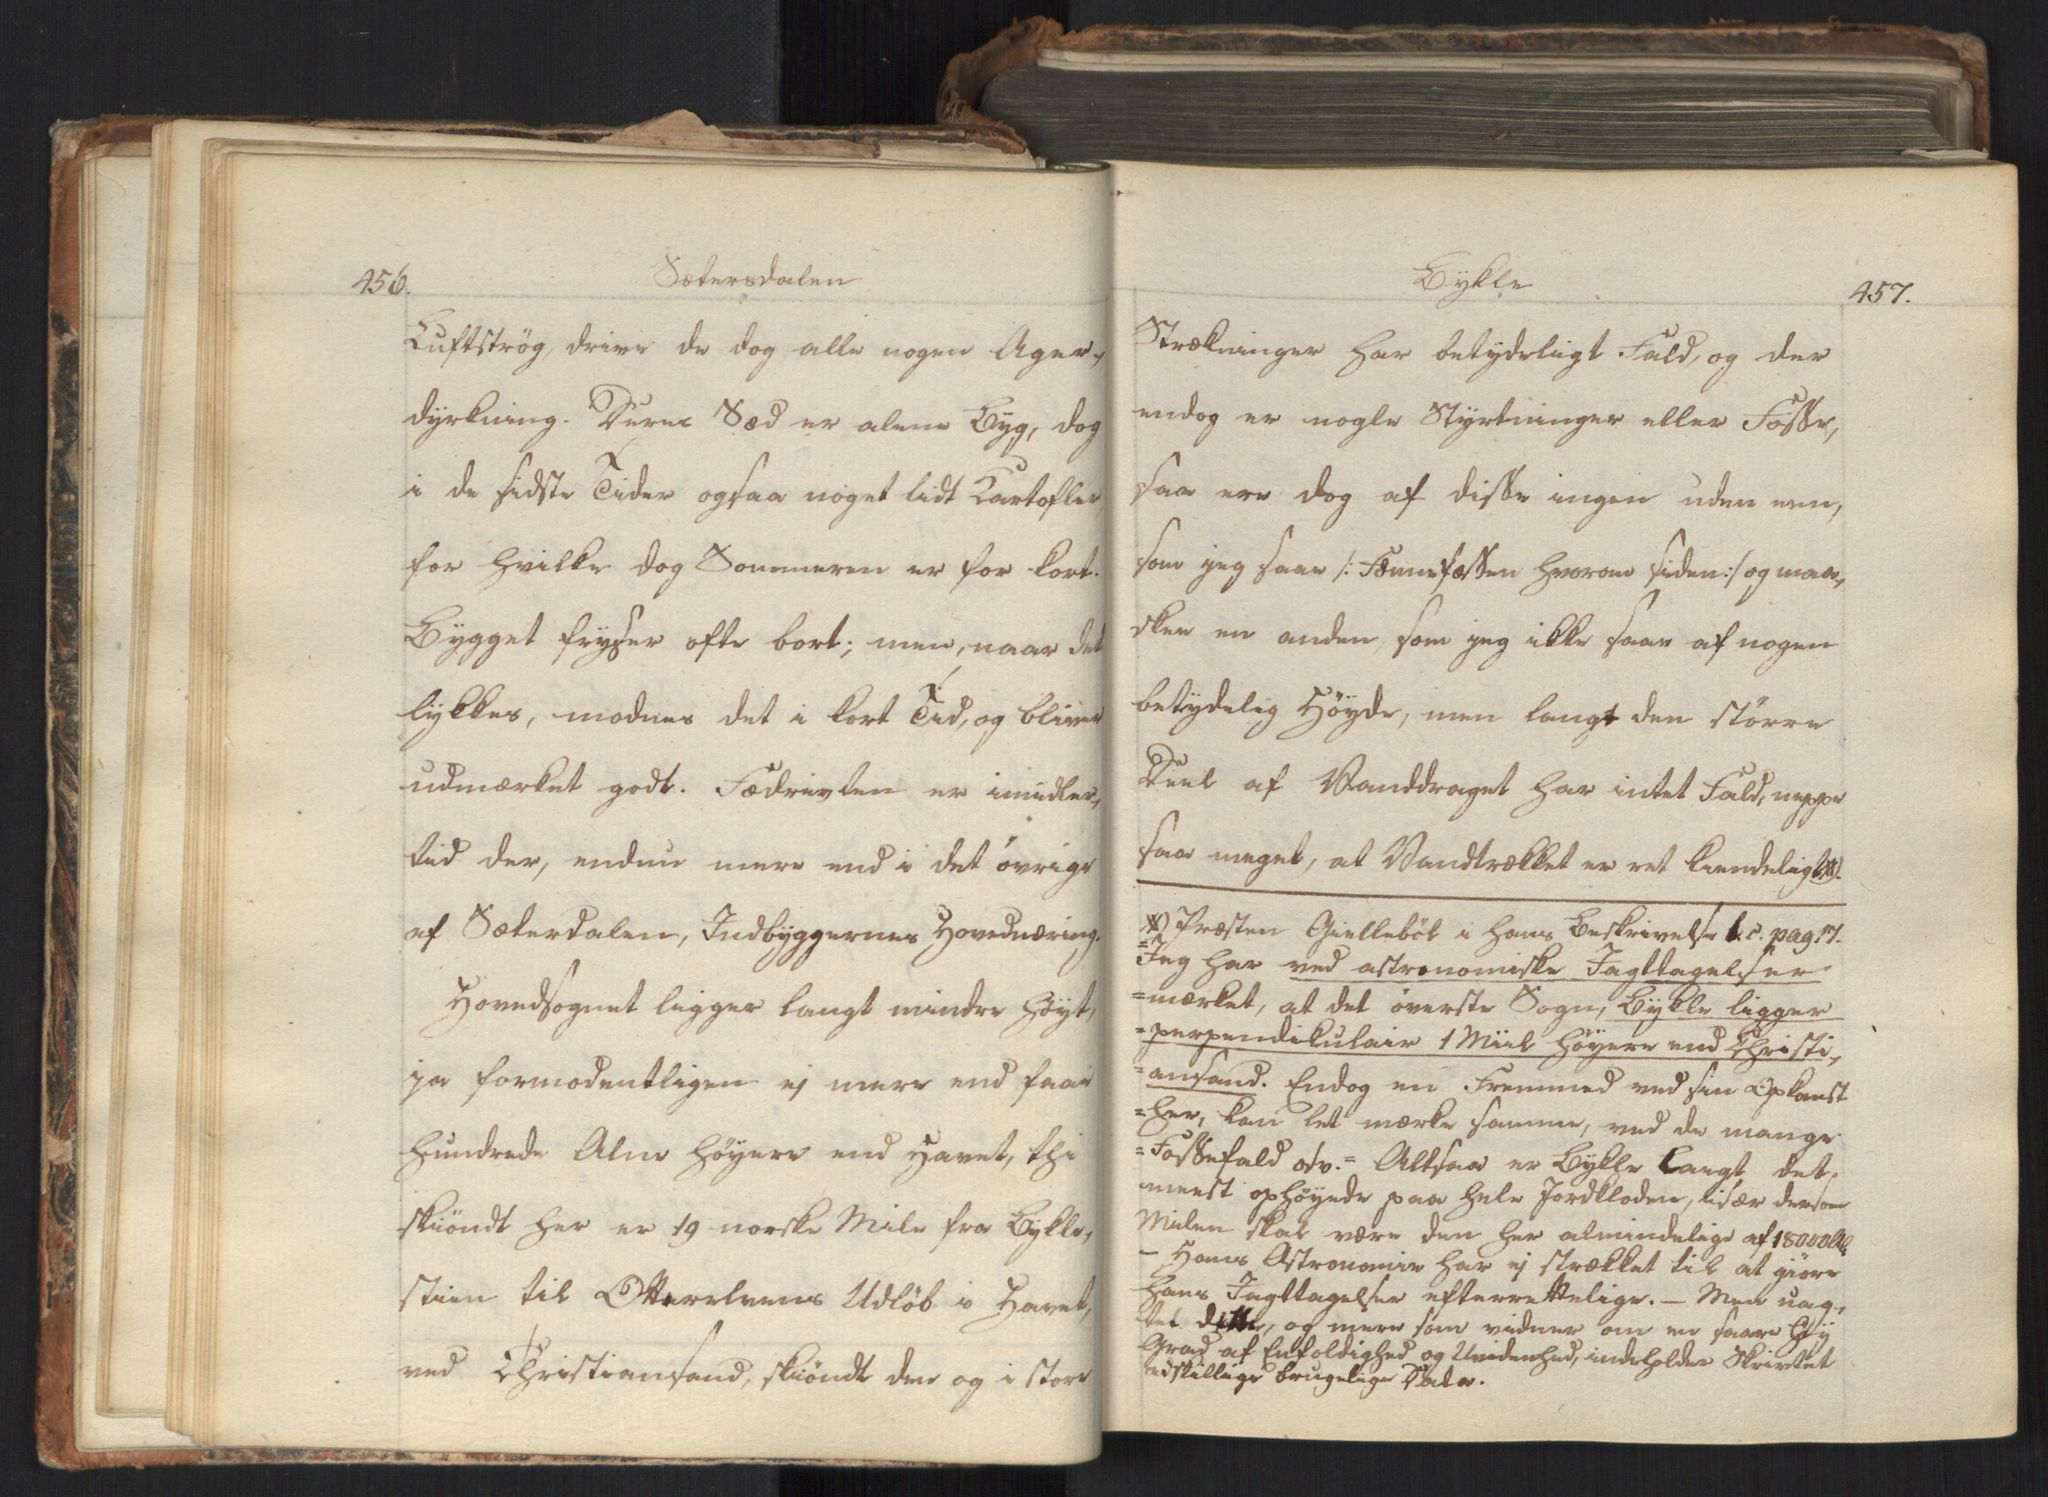 456.
Sætersdalen
Luftströg, drive de dog alle nogen Ager-
dyrkning. Deres Sæd er alene Byg, dog
i de sidste Tider ogsaa noget lidt Kartofler,
for hvilke dog Sommeren er for kort.
Bygget fryser ofte bort; men, naar det
lykkes, modnes det i kort Tid, og bliver
udmærket godt. Fædrivten er imidler-
tid der, endnu mere end i det övrige
af Sæterdalen, Indbyggernes Hovednæring.
Hovedsognet ligger langt mindre höyt,
ja formodentligen ej mere end faae
hundrede Alne höyere end Havet, thi
skiöndt her er 19 norske Mile fra Bykle-
stien til Otterelvens Udlöb i Havet,
ved Christiansand, skiöndt den og i store
Bykle
457.
Strækninger har betydeligt Fald, og der
endog er nogle Styrtninger eller Fosse,
saa ere dog af disse ingen uden een,
som jeg saae /: Fennefossen hvorom siden :/ og maa-
skee en anden, som jeg ikke saae af nogen
betydelig Höyde, men langt den större
Deel af Vanddraget har intet Fald, neppe
saa meget, at Vandtrækket er ret kiendeligt *).
*) Præsten Gielleböl i hans Beskrivelse l.c. pag 17.
=Jeg har ved astronomiske Iagttagelser
=mærket, at det överste Sogn, Bykle ligger
=perpendikulair 1 Miil höyere end Christi-
=ansand. Endog en Fremmed ved sin Opkomst
=her, kan let mærke samme, ved de mange
=Fossefald osv.= Altsaa er Bykle langt det
meest ophöyede paa hele Jordkloden, især dersom
Milen skal være den her almindelige af 18000 Al.
– Hans Astronomie har ej strækket til at giöre
hans Iagttagelser efterrettelige. – Men uag-
tet dette, og mere som vidner om en saare höy
Grad af Enfoldighed og Uvidenhed, indeholder Skrivtet
adskillige brugelige Data.